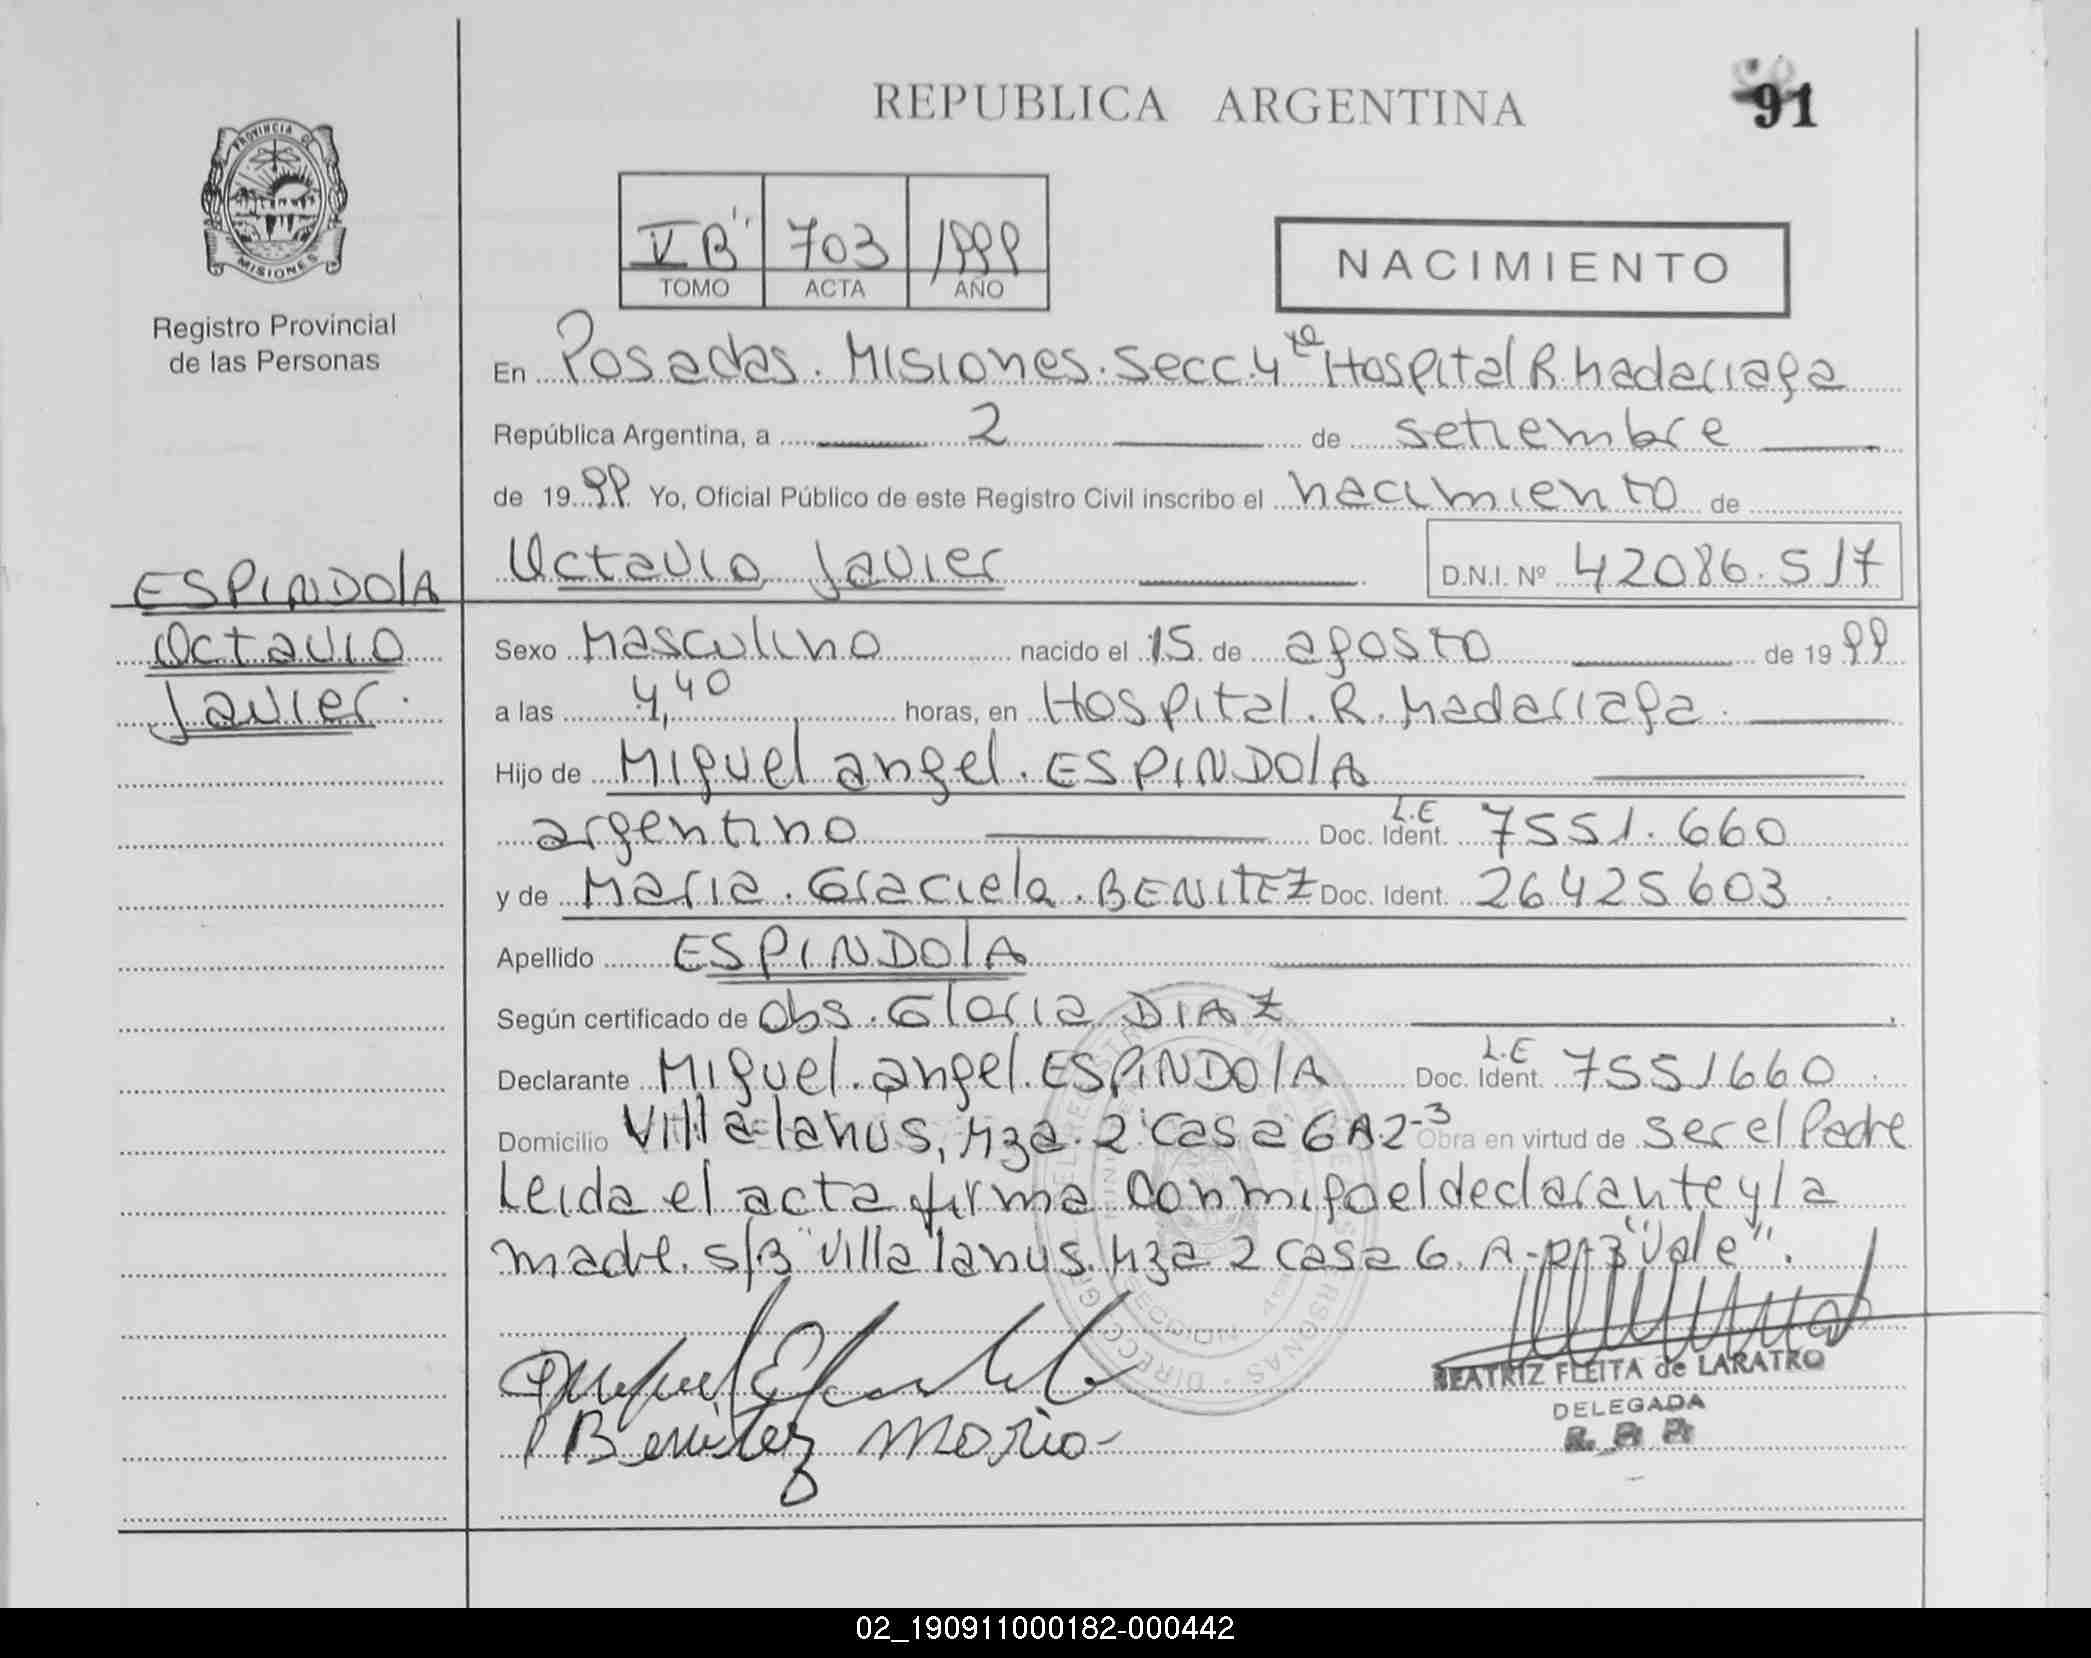 REPUBLICA ARGENTINA
91
PROVINCIA DE
MISIONES
Registro Provincial
de las Personas
V "B" 703 1999
TOMO ACTA AÑO
NACIMIENTO
En Posadas. Misiones. Secc. 4ta Hospital R. Madariaga
República Argentina, a 2 de setiembre
de 1999 Yo, Oficial Público de este Registro Civil inscribo el nacimiento de
Octavio Javier D.N.I. Nº 42086.517
ESPINDOLA
Octavio
Javier.
Sexo Masculino nacido el 15 de agosto de 1999
a las 4,40 horas, en Hospital. R. Madariaga.
Hijo de Miguel angel. ESPINDOLA
argentino Doc. Ident. L.E 7551.660
y de Maria. Graciela. BENITEZ Doc. Ident. 26425603
Apellido ESPINDOLA
Según certificado de Obs. Gloria DIAZ
Declarante Miguel. angel. ESPINDOLA Doc. Ident. L.E 7551660
Domicilio Villa lanus, Mza. 2 Casa 6 A2-3 Obra en virtud de ser el Padre
Leida el acta firma conmigo el declarante y la
madre. s/B "Villa lanus. Mza 2 casa 6. A-
"Vale".
Benitez Maria-
BEATRIZ FLEITA de LARATRO
DELEGADA
02_190911000182-000442